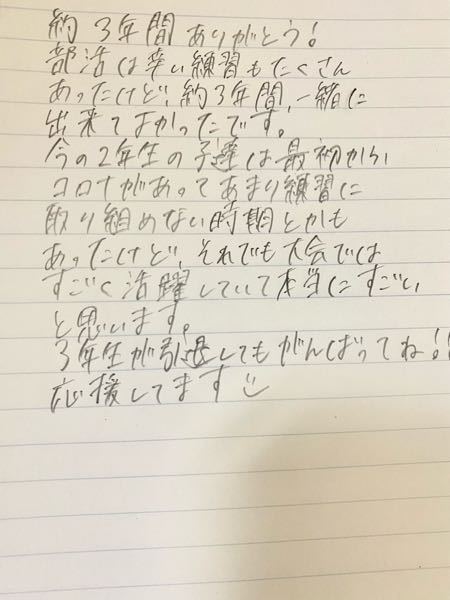 約3年間ありがとう!
部活は辛い練習もたくさん
あったけど、約3年間、一緒に
出来てよかったです。
今の2年生の子達は最初から
コロナがあってあまり練習に
取り組めない時期とかも
あったけど、それでも大会では
すごく活躍していて本当にすごい
と思います。
3年生が引退してもがんばってね!!
応援してます